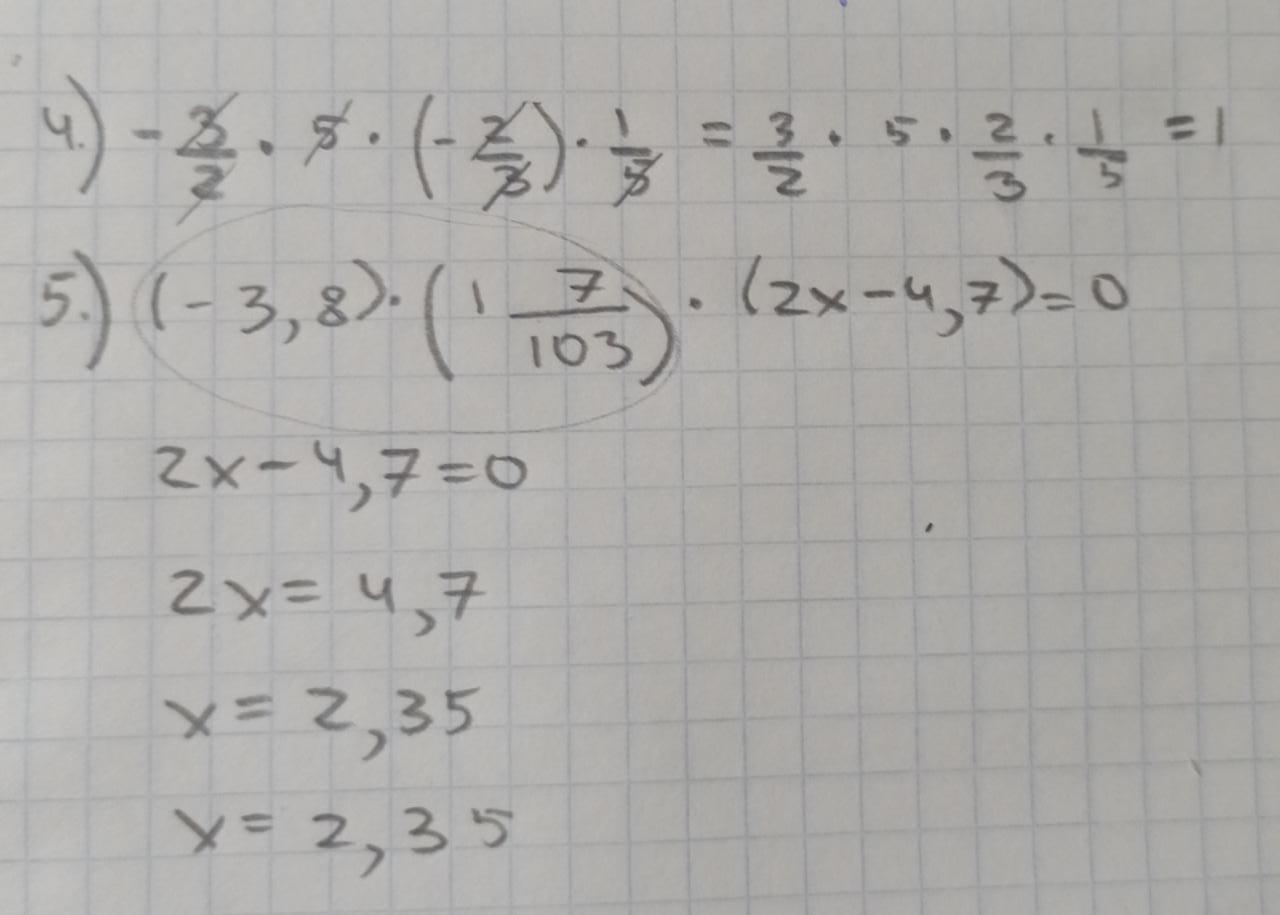 4.) - 3/2 · 5 · (- 2/3) · 1/5 = 3/2 · 5 · 2/3 · 1/5 = 1
5.) (-3,8) · (1 7/103) · (2x-4,7)=0
2x-4,7=0
2x= 4,7
x= 2,35
x= 2,35